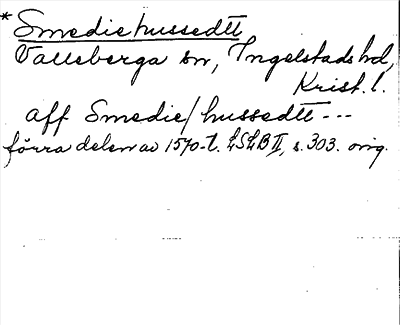 * Smediehussedtt
Valleberga sn, Ingelstads hd,
Krist. l.
aff Smedie/hussedtt---
förra delen av 1570-t. LSLB II, s. 303. orig.